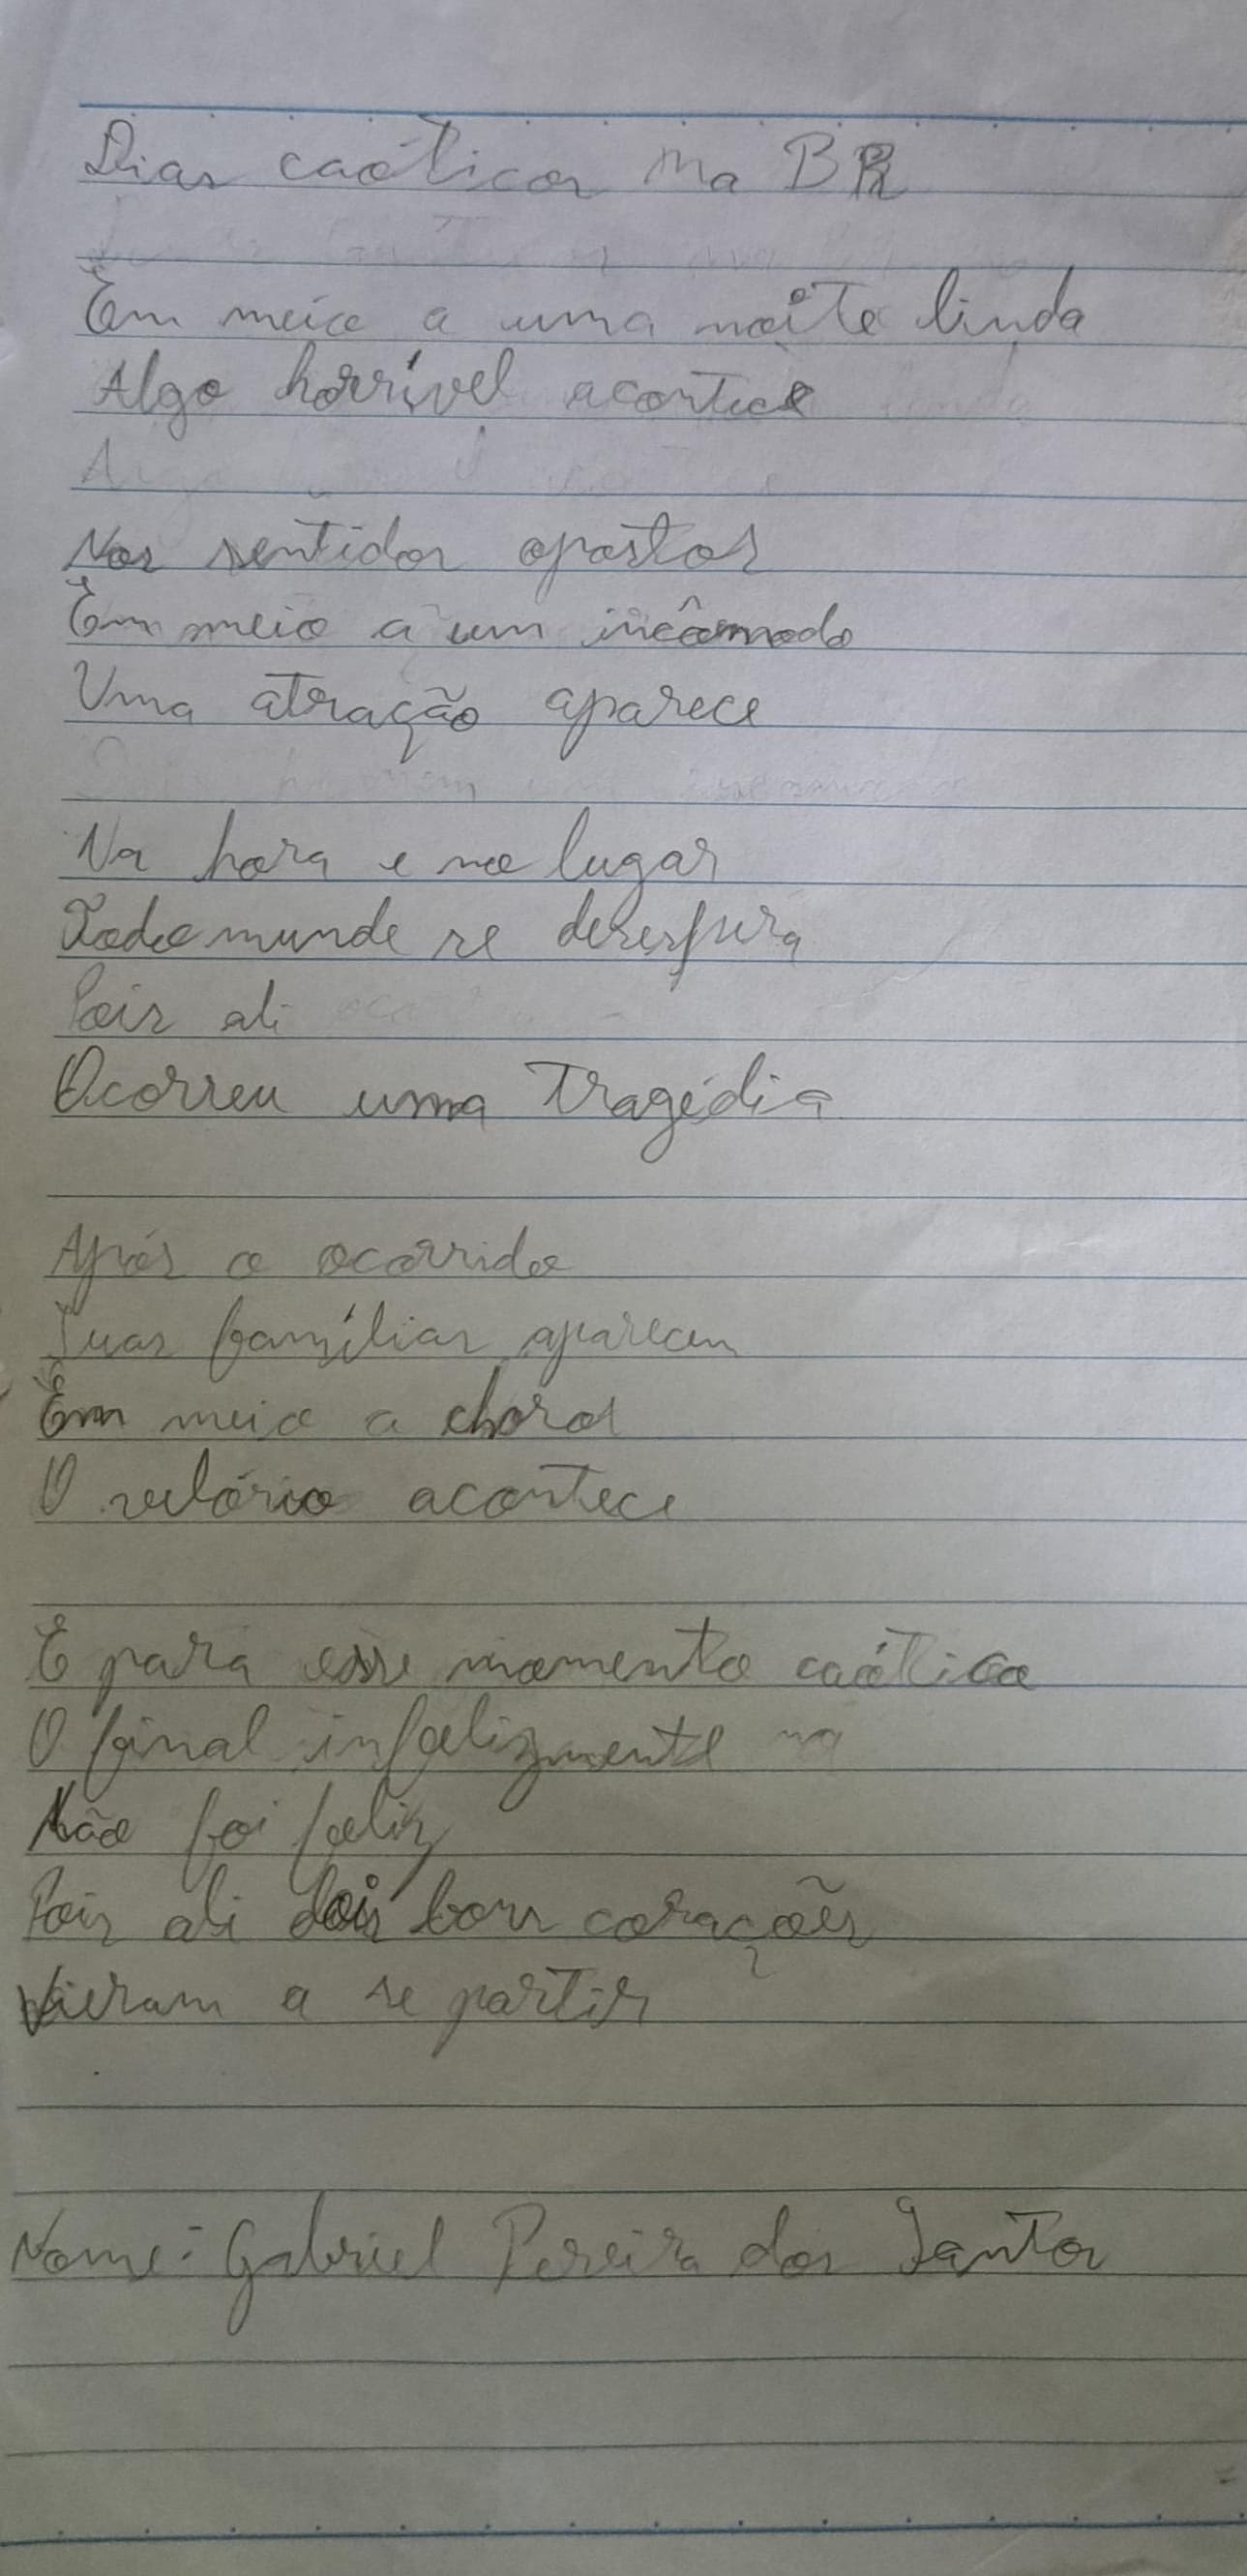 Dias caóticos na BR
Em meio a uma noite linda
Algo horrível acontece
Nos sentidos opostos
Em meio a um incômodo
Uma atração aparece
Na hora e no lugar
Todo mundo se desespera
Pois ali
Ocorreu uma tragédia
Após o ocorrido
Suas famílias aparecem
Em meio a choros
O velório acontece
E para esse momento caótico
O final infelizmente
Não foi feliz
Pois ali dois bons corações
Vieram a se partir
Nome: Gabriel Pereira dos Santos